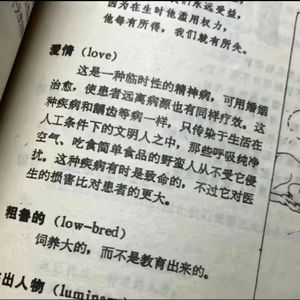 因为在生时他滥用权力,
他每有所得,我们就有所失。
爱情 (love)
这是一种临时性的精神病,可用婚姻
治愈,使患者远离病源也有同样疗效。这
种疾病和龋齿等病一样,只传染于生活在
人工条件下的文明人之中,那些呼吸纯净
空气、吃食简单食品的野蛮人从不受它侵
扰。这种疾病有时是致命的,不过它对医
生的损害比对患者的更大。
粗鲁的 (low-bred)
饲养大的,而不是教育出来的。
出人物